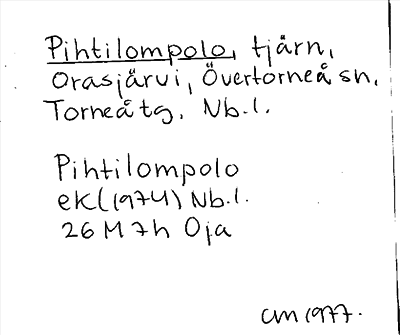 Pihtilompolo, tjärn,
Orasjärvi, Övertorneå sn,
Torneå tg, Nb.l.
Pihtilompolo
ek (1974) Nb.l.
26 M 7h Oja
CM 1977.